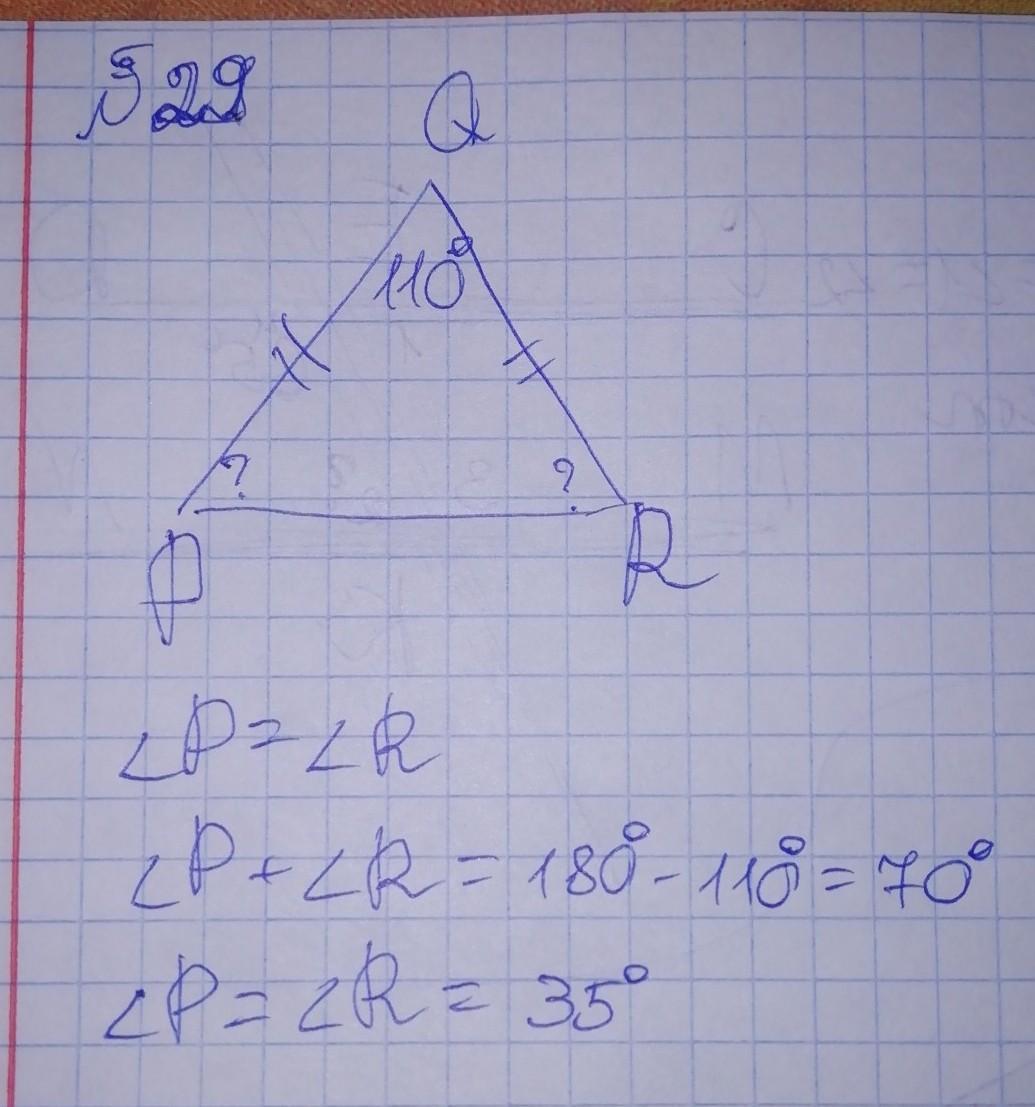 № 29
Q
110°
? ?
P R
∠P = ∠R
∠P + ∠R = 180° - 110° = 70°
∠P = ∠R = 35°